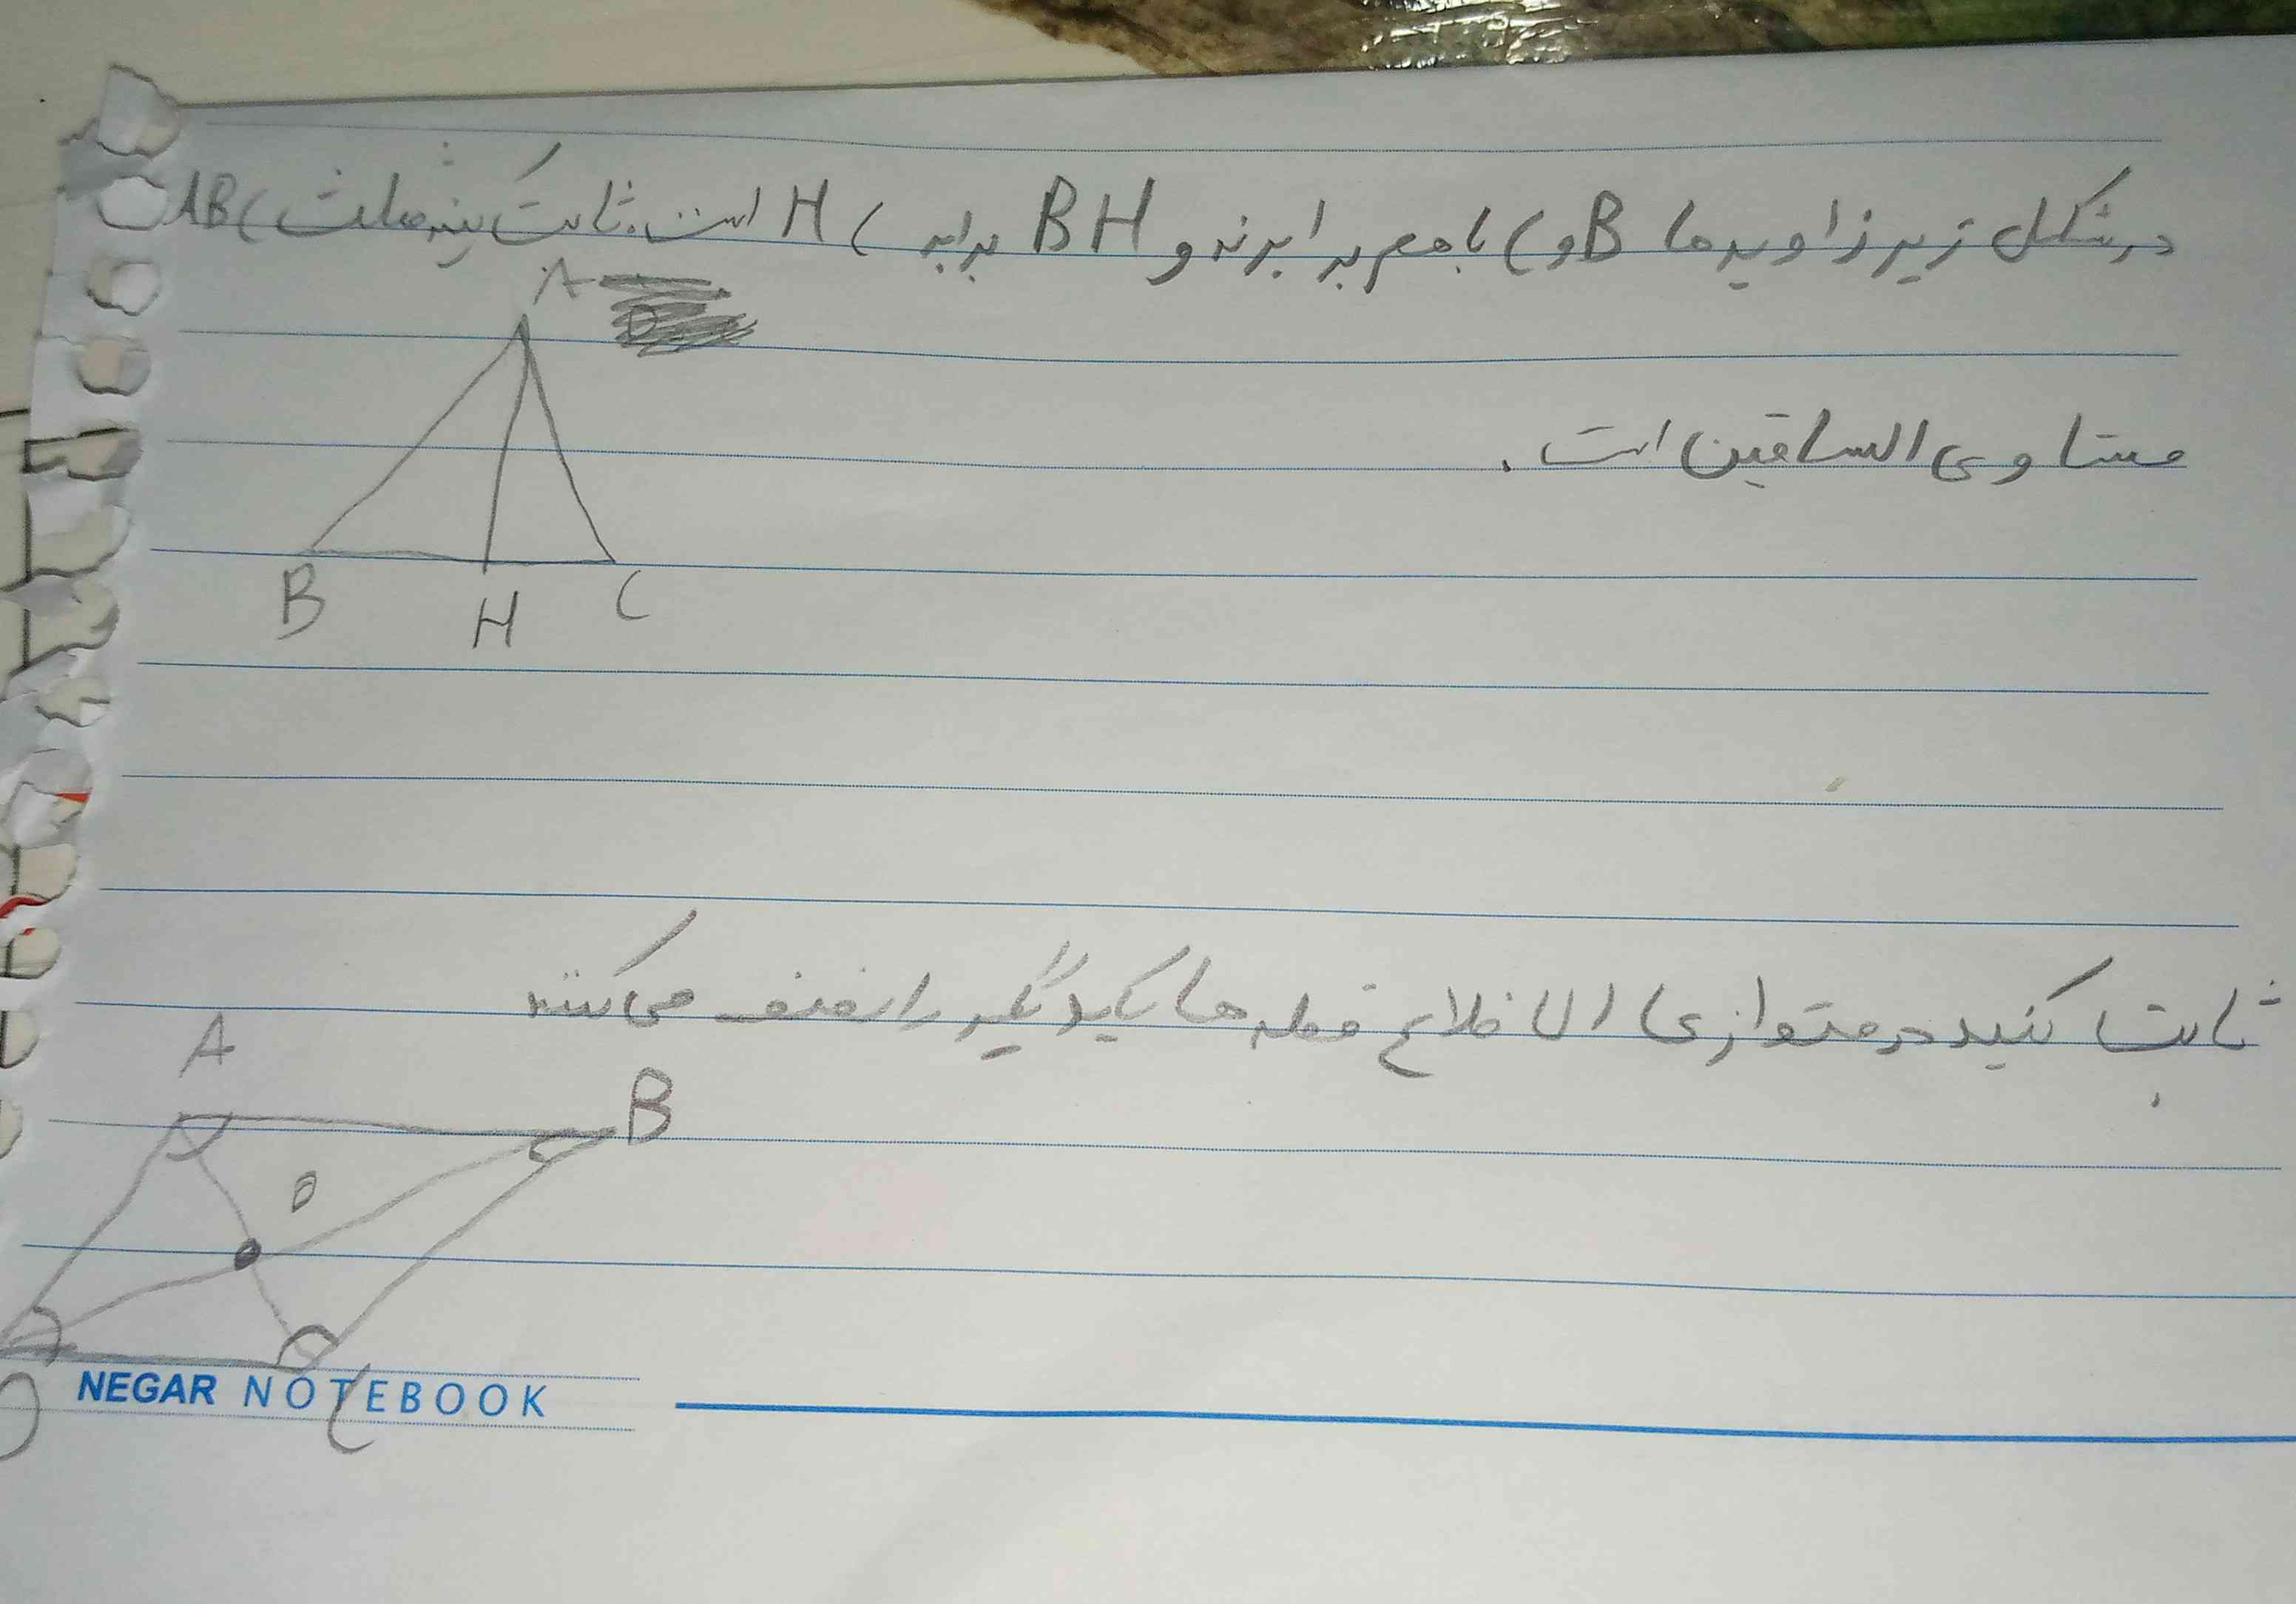 در شکل زیر زاویه ها B و C با هم برابرند و BH برابر CH است. ثابت کنید مثلث ABC
مساوی الساقین است.
A
B H C
ثابت کنید در متوازی الاضلاع قطرها یکدیگر را نصف می‌کنند
A
B
O
D
C
NEGAR NOTEBOOK